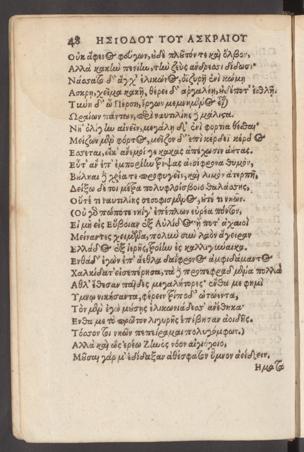 48 ΗΣΙΟΔΟΥ ΤΟΥ ΑΣΚΡΑΙΟΥ
Οὐκ ἄφενος φεύγων, οὐδὲ πλοῦτόν τε καὶ ὄλβον,
Ἀλλὰ κακὴν πενίην, τὴν ζεὺς ἄνδρεσσι δίδωσι.
Νάσσατο δ' ἄγχ' ἑλικῶνος, ὀϊζυρῇ ἐνὶ κώμῃ
Ἄσκρῃ, χεῖμα κακῇ, θέρει δ' ἀργαλέῃ, οὐδέ ποτ' ἐσθλῇ.
Τύνη δ' ὦ Πέρση, ἔργων μεμνημένος εἶναι
Ὡραίων πάντων, περὶ ναυτιλίης δὲ μάλιστα.
Νῆ' ὀλίγην αἰνεῖν, μεγάλῃ δ' ἐνὶ φορτία θέσθαι.
Μείζων μὲν φόρτος, μεῖζον δ' ἐπὶ κέρδεϊ κέρδος
Ἔσσεται, εἴκ' ἄνεμοί γε κακὰς ἀπέχωσιν ἀήτας.
Εὖτ' ἂν ἐπ' ἐμπορίην τρέψας ἀεσίφρονα θυμὸν,
Βούληαι δὲ χρέα τε προφυγεῖν, καὶ λιμὸν ἀτερπῆ,
Δείξω δέ τοι μέτρα πολυφλοίσβοιο θαλάσσης,
Οὔτέ τι ναυτιλίης σεσοφισμένος, οὔτέ τι νηῶν.
(Οὐ γὰρ πώποτε νηΐ γ' ἐπέπλων εὐρέα πόντον,
Εἰ μὴ εἰς Εὔβοιαν ἐξ Αὐλίδος ᾗ ποτ' ἀχαιοὶ
Μείναντες χειμῶνα, πολὺν σὺν λαὸν ἄγειραν
Ἑλλάδος ἐξ ἱερῆς, Τροίην ἐς καλλιγύναικα.
Ἔνθαδ' ἐγὼν ἐπ' ἄεθλα δαΐφρονος ἀμφιδάμαντος
Χαλκίδα τ' εἰσεπέρησα, τὰ δὲ προπεφραδμένα πολλὰ
Ἆθλ' ἔθεσαν παῖδες μεγαλήτορες· ἔνθα με φημὶ
Ὕμνῳ νικήσαντα, φέρειν τρίποδ' ὠτώεντα,
Τὸν μὲν ἐγὼ μούσῃς ἑλικωνιάδεσσ' ἀνέθηκα
Ἔνθα με τὸ πρῶτον λιγυρῆς ἐπέβησαν ἀοιδῆς.
Τόσσόν τοι νηῶν πεπείραμαι πολυγόμφων.)
Ἀλλὰ καὶ ὣς ἐρέω Ζηνὸς νόον αἰγιόχοιο,
Μοῦσαι γάρ μ' ἐδίδαξαν ἀθέσφατον ὕμνον ἀείδειν.
Ἤματα